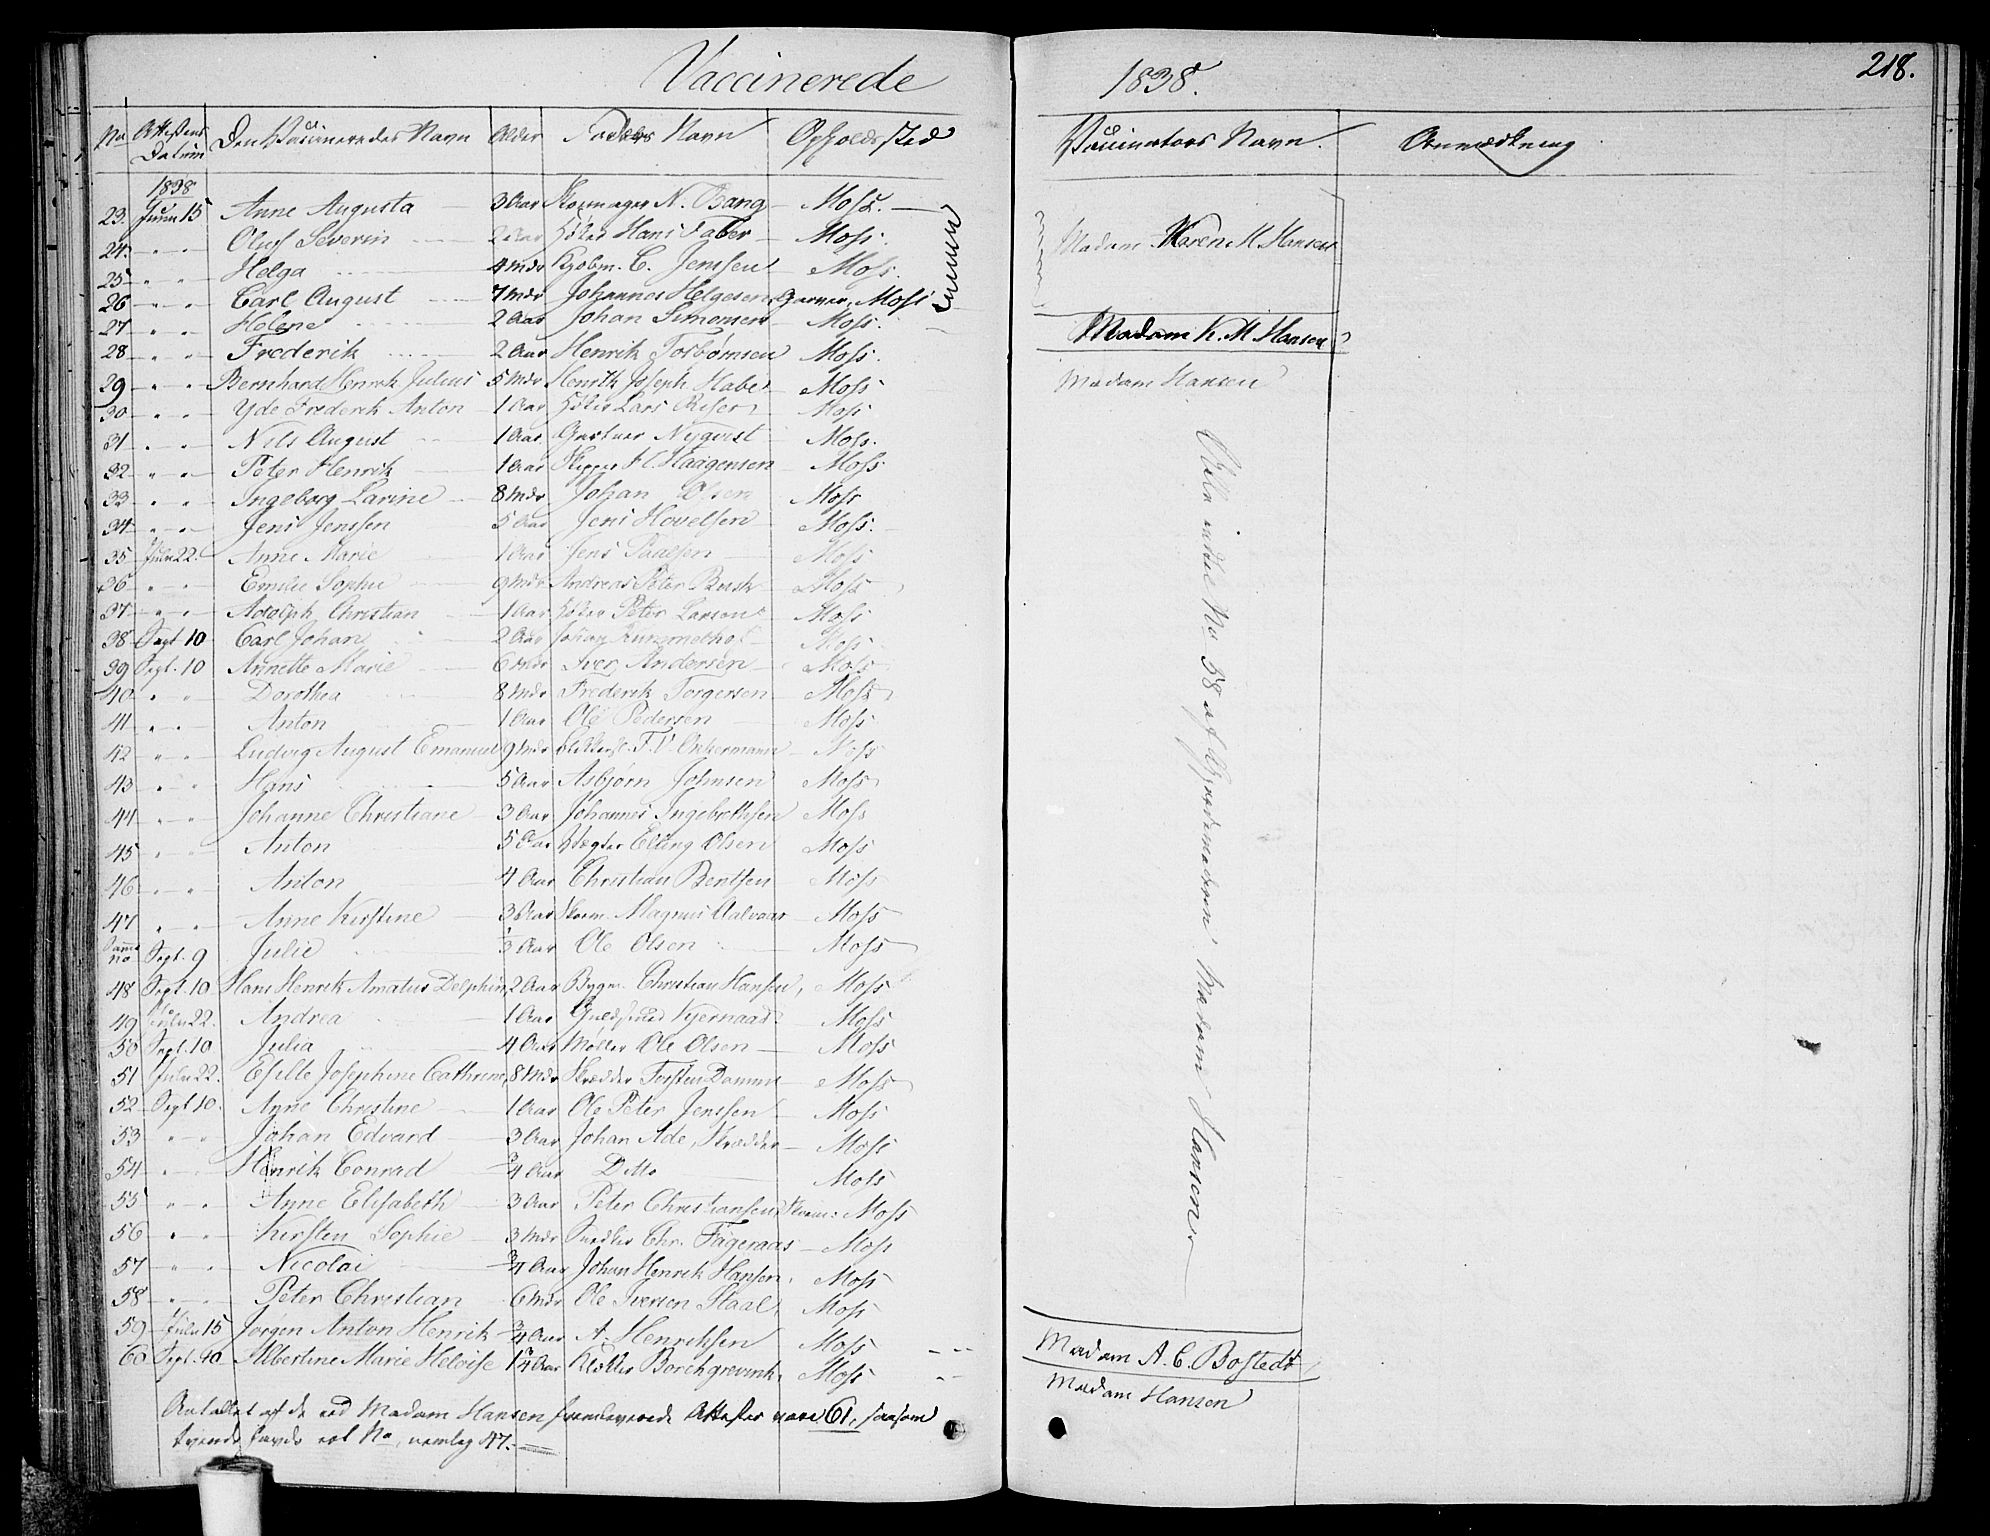 Vaccinerede
1838.
218.
No Attestens Datum Den Vaccineredes Navn Alder Faders Navn Opholdssted Vaccinators Navn. Anmærkning
1838
23. Juni 15 Anne Augusta 3 Aar Skomager N. Bang Moss.
24. " " Oluf Severin 2 Aar Høker Hans Faber Moss. Madam Karen M Hansen
25 " " Helga 4 Mdr Kjøbm. C. Jenssen Moss.
26 " " Carl August 7 Mdr Johannes Helgesen, Garver, Moss
27 " " Helene 2 Aar Johan Simonsen Moss. Madam K. M Hansen
28 " " Frederik 2 Aar Henrik Torbørnsen Moss.
29 " " Bernhard Henrik Julius 5 Mdr Henrik Joseph Habel Moss Madam Hansen
30 " " Yde Frederik Anton 1 Aar Høker Lars Riser Moss
31 " " Nils August 1 Aar Gartner Nyqvist Moss.
32 " " Peter Henrik 1 Aar Skipper H. Haagensen Moss
33 " " Ingeborg Larine 8 Mdr Johan Olsen Moss
34 " " Jens Jenssen 5 Aar Jens Hovelsen Moss.
35 Juli 22. Anne Marie 1 Aar Jens Paalsen Moss
36 " " Emilie Sophie 9 Mdr Andreas Peter Busch Moss
37 " " Adolph Christian 1 Aar Høker Peter Larsen Moss
38 Sept 10 Carl Johan 2 Aar Moss
39 Sept. 10 Annette Marie 6 Mdr Iver Andersen Moss
40 " " Dorothea 8 Mdr Frederik Torgersen Moss
41 " " Anton 1 Aar Ole Pedersen Moss
42 " " Ludvig August Emanuel 9 Mdr F. V. Ankermann Moss
43 " " Hans 5 Aar Asbjørn Johnsen Moss
44 " " Johanne Christiane 3 Aar Johannes Ingebrethsen Moss
45 " " Anton 5 Aar Vægter Elling Olsen Moss
46 " " Anton 4 Aar Christian Bentsen Moss
47 " " Anne Kirstine 3 Aar Skom. Magnus Aalvaar Moss
Samme no Sept. 9 Julie 3 Aar Ole Olsen Moss
48 Sept. 10 Hans Henrik Amatus Delphin, 2 Aar Bygm. Christian Hansen, Moss
49 Juli 22. Andrea 1 Aar Guldsmed Kjernaas Moss
50 Sept. 10 Julia 4 Aar Møller Ole Olsen Moss
51 Juli 22. Esille Josephine Cathrine, 8 Mdr Skrædder Torsten Damm Moss
52 Sept 10. Anne Christine 1 Aar Ole Peter Jenssen Moss
53 " " Johan Edvard 3 Aar Johan Ade, Skrædder Moss
54 " " Henrik Conrad 3/4 Aar Ditto Moss
55 " " Anne Elisabeth 3 Aar Peter Christiansen, Skom: Moss
56 " " Kirsten Sophie 3 Mdr Snedker Chr. Fageraas Moss
57 " " Nicolai 3/4 Aar Johan Henrik Hansen, Moss
58 " " Peter Christian 6 Mdr Ole Iversen Staal Moss
59 Juli 15 Jørgen Anton Henrik 3/4 Aar A. Henrichsen Moss Madam A. C. Bostedt
60 Sept. 10 Albertine Marie Heloise 1 3/4 Aar Klokker Borchgrevink, Moss Madam Hansen
Alle indtil No 58 af Gjordemoderen Madam Hansen
Antallet af de ved Madam Hansen fremleverede Attester vare 61, saasom
tvende havde eet No, nemlig 47.